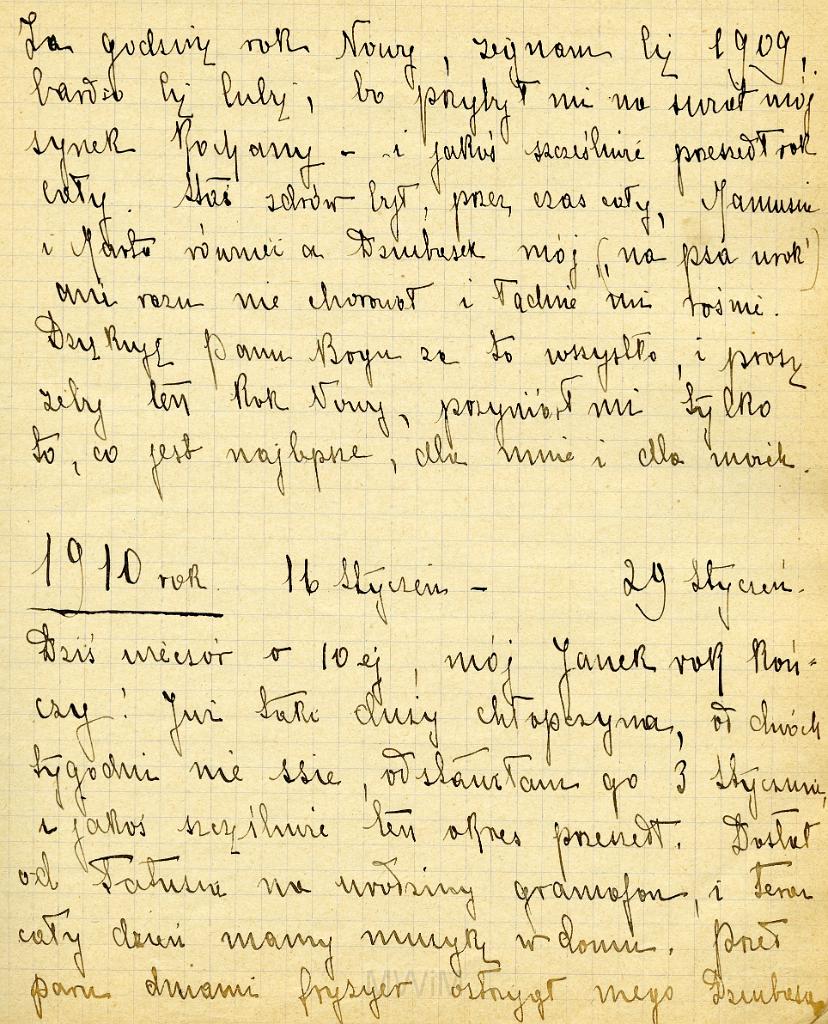 Za godzinę rok Nowy, żegnam Cię 1909,
bardzo Cię lubię, bo przybył mi na świat mój
synek kochany - i jakoś szczęśliwie przeszedł rok
cały. Staś zdrów był, przez czas cały, Mamusia
i Marta również a Dziubasek mój („na psa urok")
ani razu nie chorował i ładnie mi rośnie.
Dziękuję Panu Bogu za to wszystko, i proszę
żeby ten Rok Nowy, przyniósł mi tylko
to, co jest najlepsze, dla mnie i dla moich.
1910 rok. 16 Styczeń - 29 Styczeń.
Dziś wieczór o 10ej, mój Janek rok koń-
czy! Już taki duży chłopczyna, od dwóch
tygodni nie ssie, odstawiłam go 3 Stycznia,
i jakoś szczęśliwie ten okres przeszedł. Dostał
od Tatusia na urodziny gramofon, i teraz
cały dzień mamy muzykę w domu. Przed
paru dniami fryzyer ostrzygł mego Dziubasa
MWiM